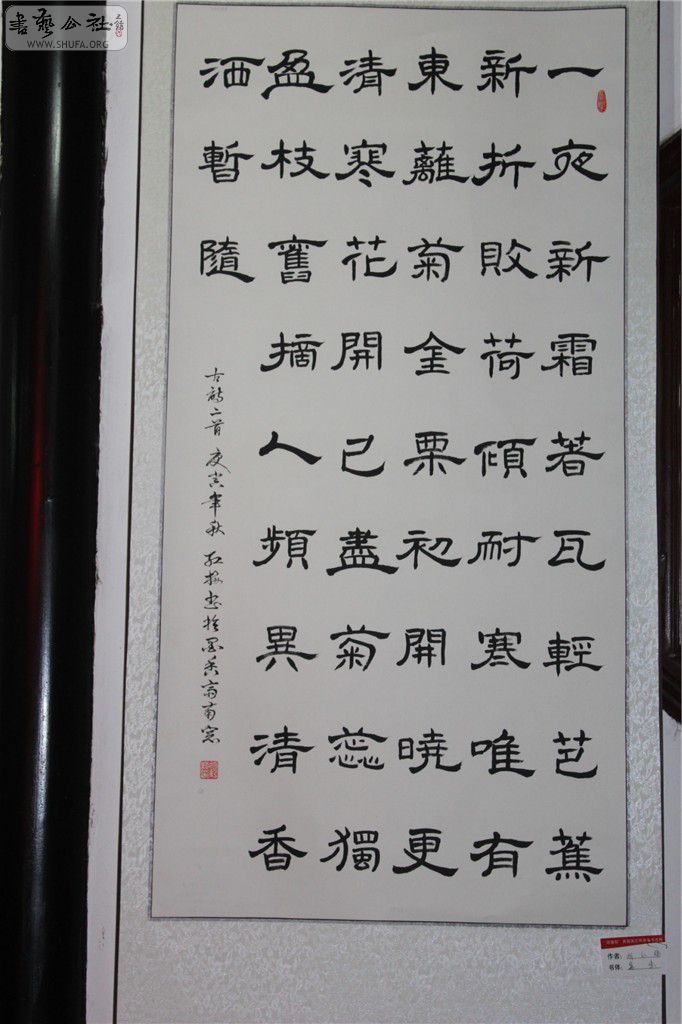 書藝公社
WWW.SHUFA.ORG
一夜新霜著瓦輕芭蕉
新折敗荷傾耐寒唯有
東蘺菊金栗初開曉更
清寒花開已盡菊蕊獨
盈枝舊摘人頻異清香
酒暫隨
古詩二首 庚寅年秋 紅梅書於墨香齋南窓
作者:
书体: